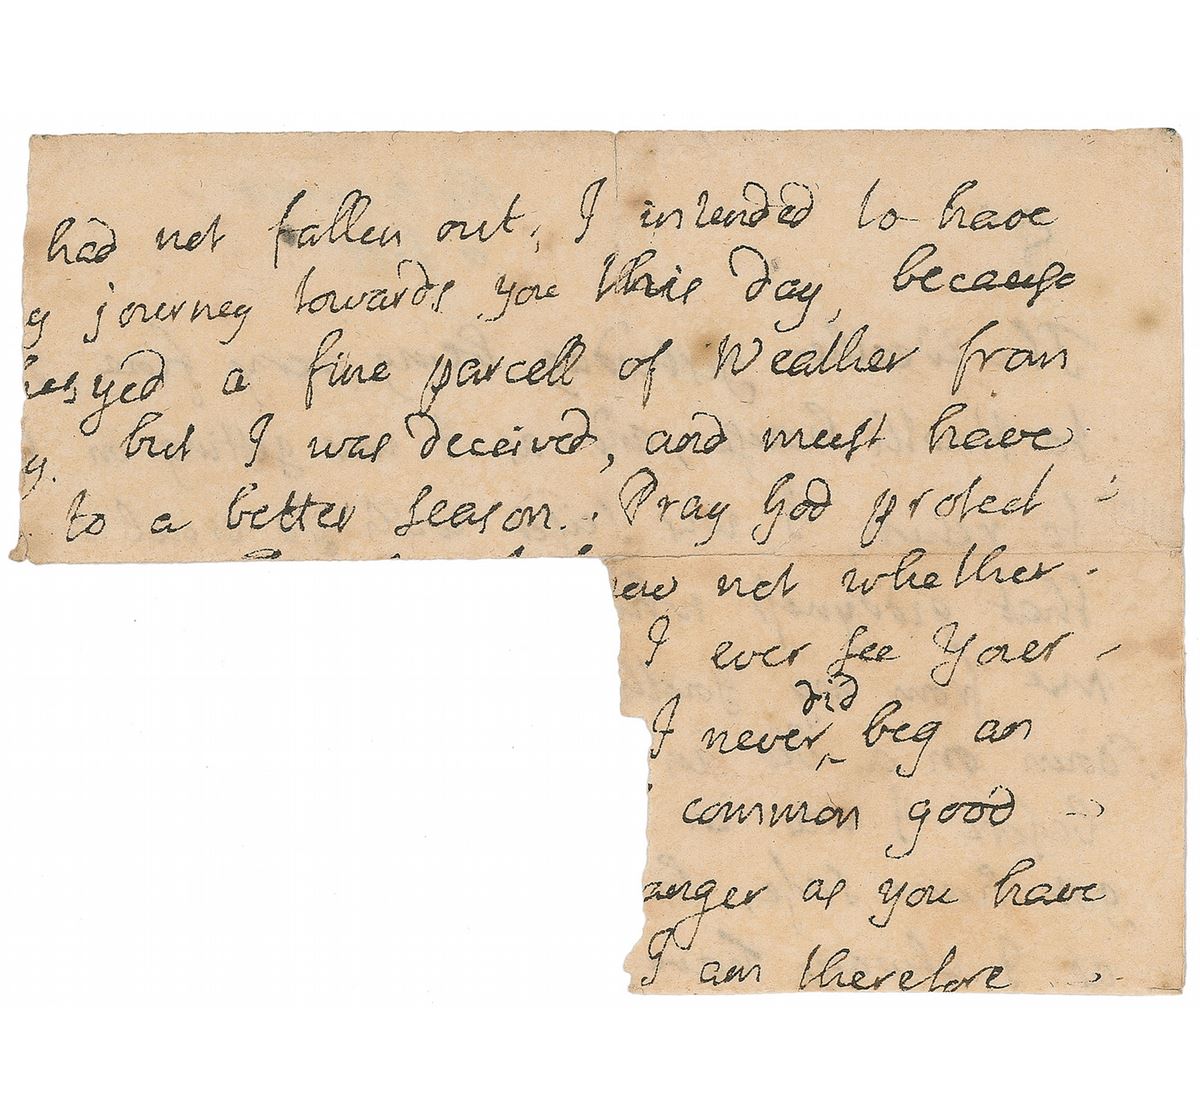 had not fallen out, I intended to have
y journey towards you this day, because
a fine parcell of Weather from
y. but I was deceived, and must have
to a better season. Pray God protect
not whether
I ever see Your
I never did beg an
common good
anger as you have
I am therefore